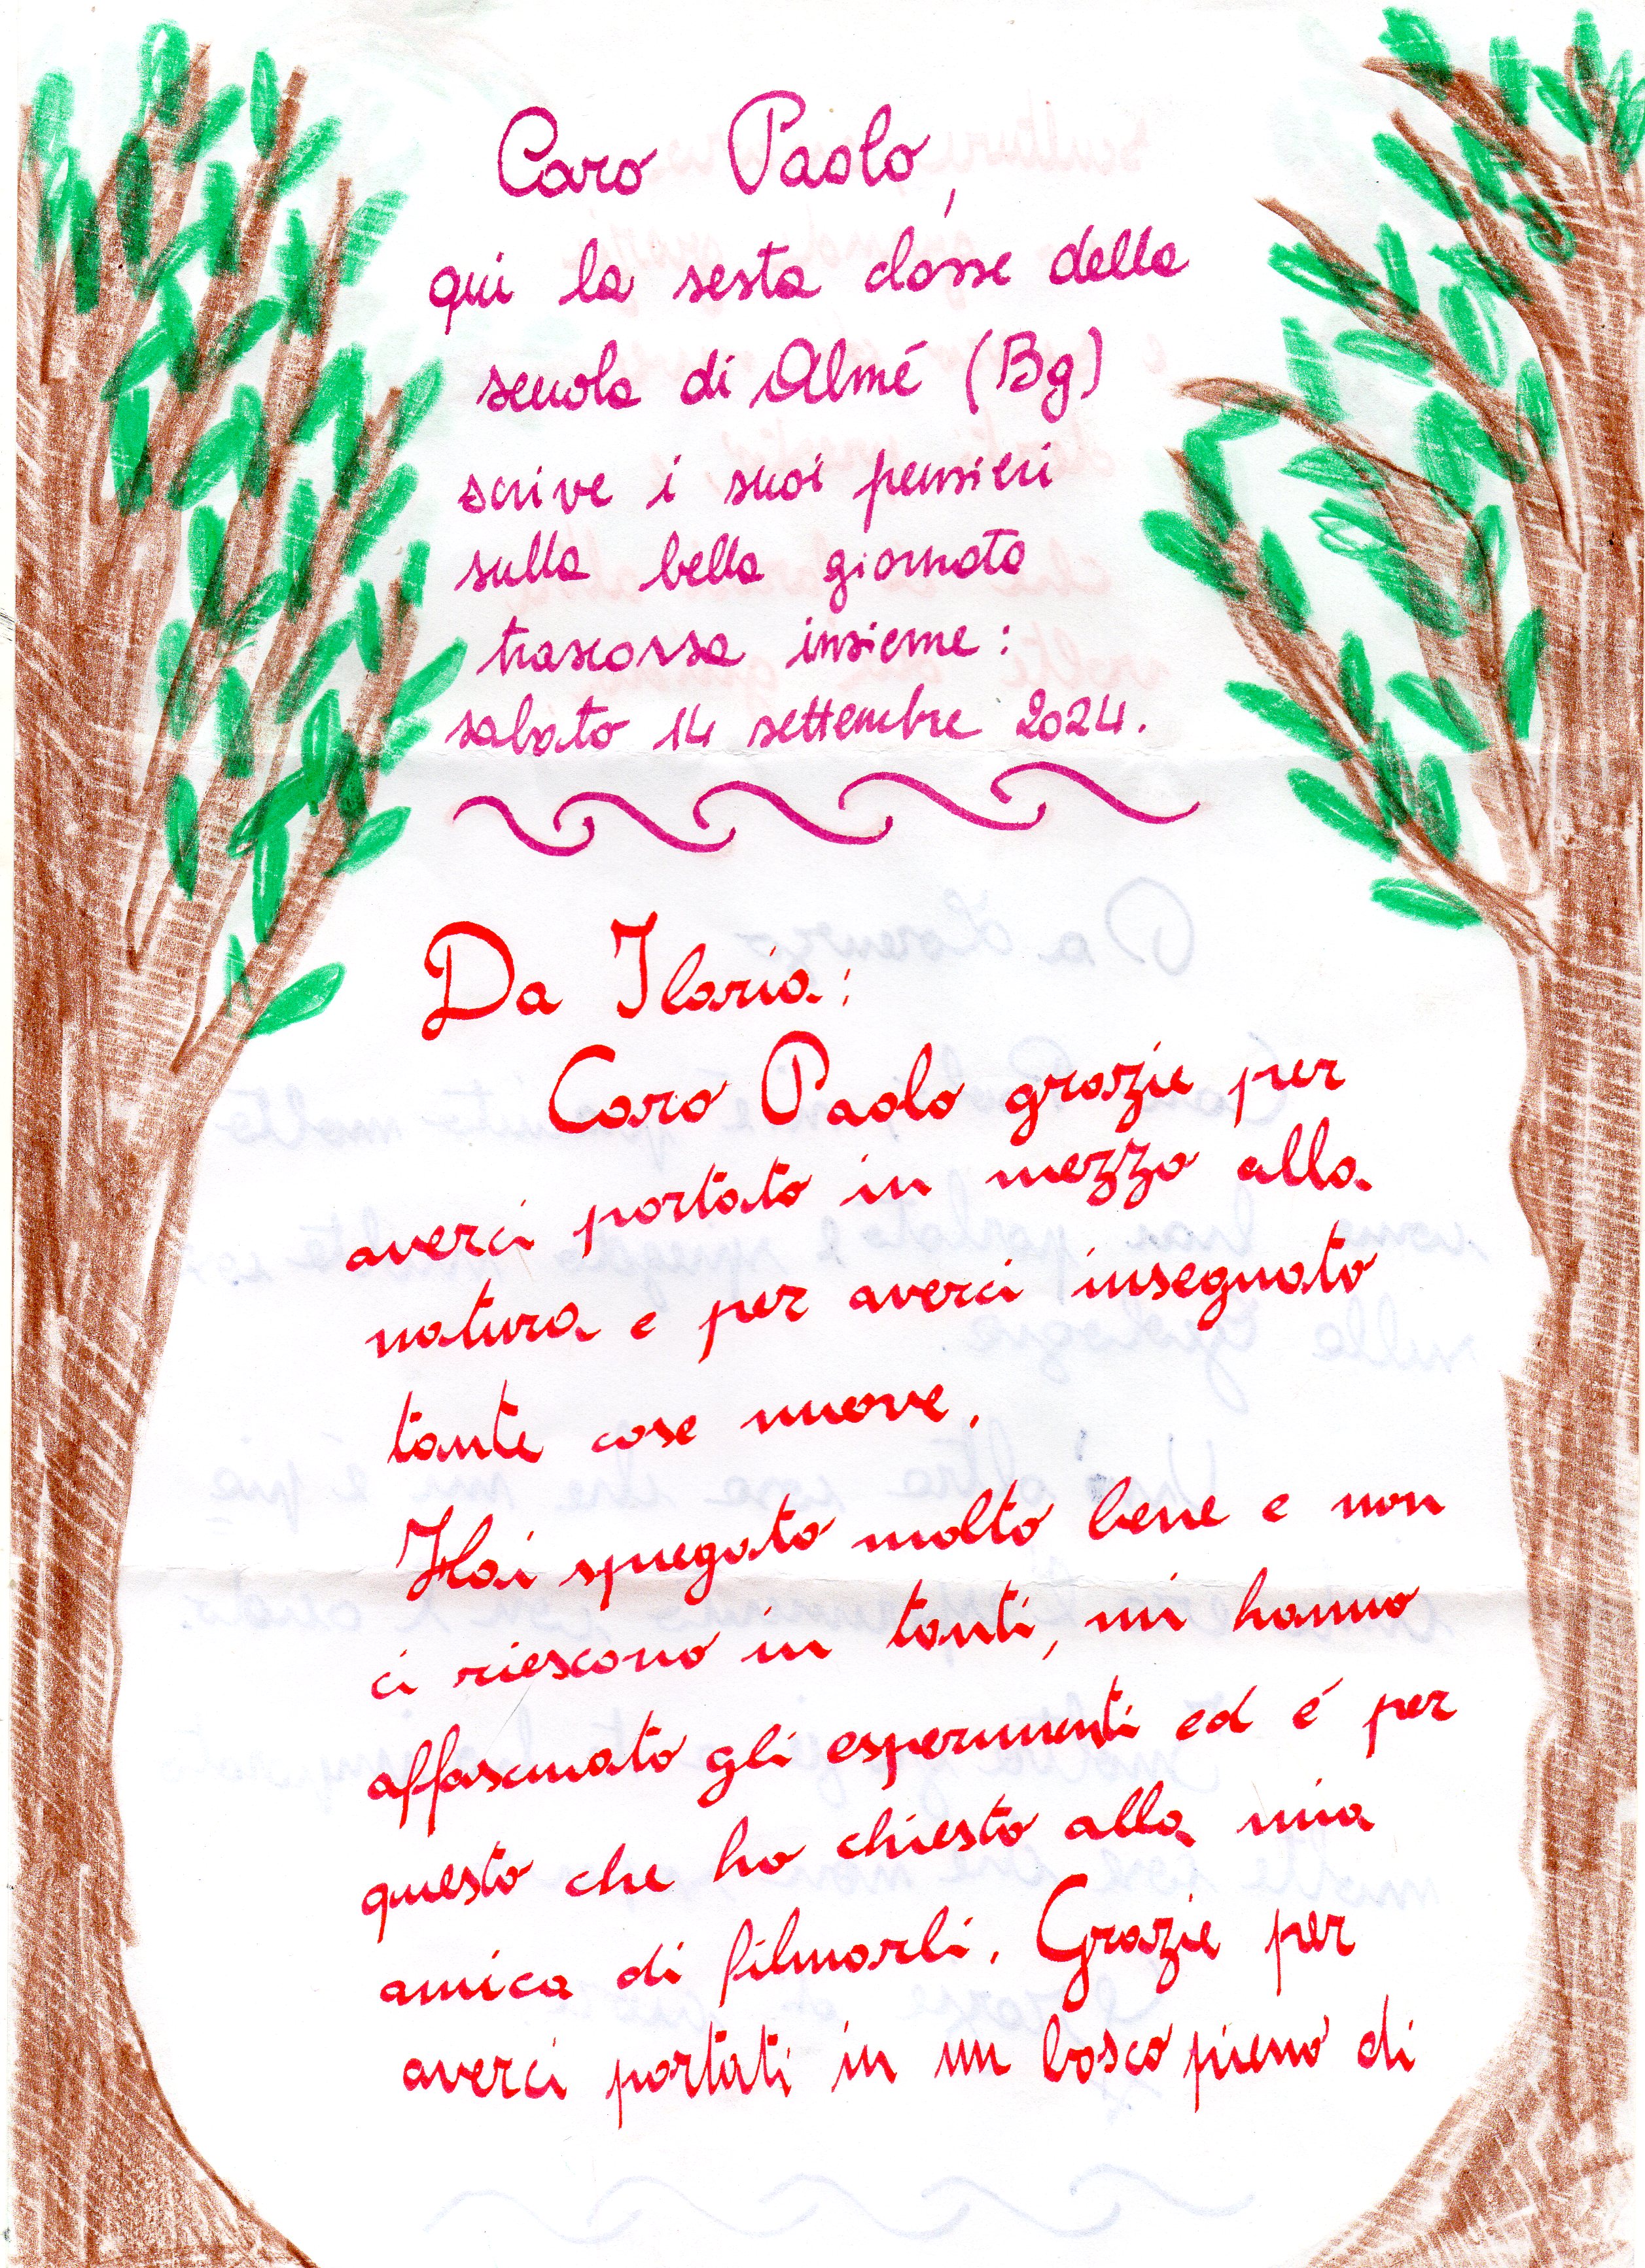 Caro Paolo,
qui la sesta classe della
scuola di Almé (Bg)
scrive i suoi pensieri
sulla bella giornata
trascorsa insieme:
sabato 14 settembre 2024.
Da Ilaria:
Caro Paolo grazie per
averci portato in mezzo alla
natura e per averci insegnato
tante cose nuove.
Hai spiegato molto bene e non
ci riescono in tanti, mi hanno
affascinato gli esperimenti ed é per
questo che ho chiesto alla mia
amica di filmarli. Grazie per
averci portati in un bosco pieno di